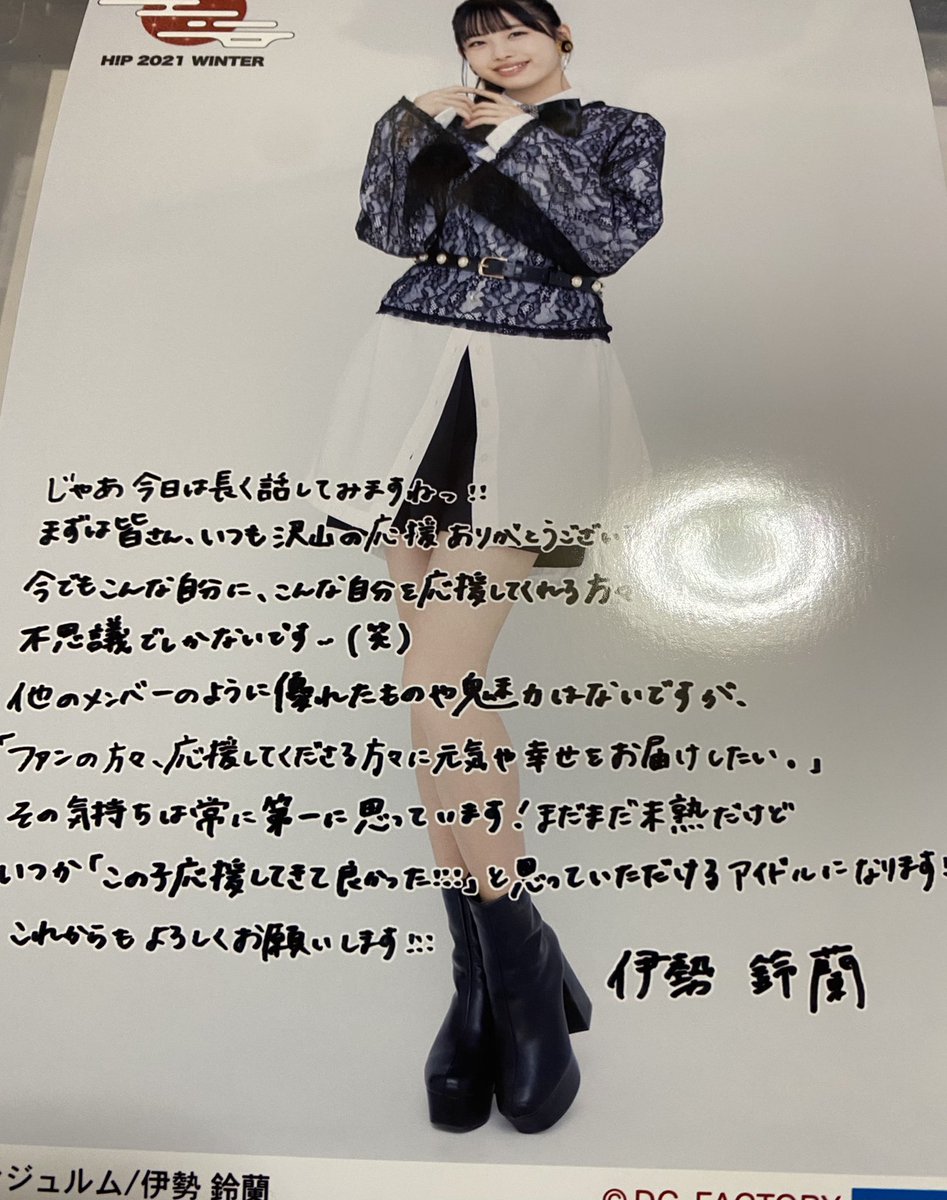 H!P 2021 WINTER
じゃあ今日は長く話してみますねっ!!
まずは皆さん、いつも沢山の応援ありがとうござい
今でもこんな自分に、こんな自分を応援してくれる方々
不思議でしかないです~(笑)
他のメンバーのように優れたものや魅力はないですが、
「ファンの方々、応援してくださる方々に元気や幸せをお届けしたい。」
その気持ちは常に第一に思っています!まだまだ未熟だけど
いつか「この子応援してきて良かった!!!」と思っていただけるアイドルになります!
これからもよろしくお願いします!!!
伊勢 鈴蘭
ンジュルム/伊勢 鈴蘭
©DC FACTORY